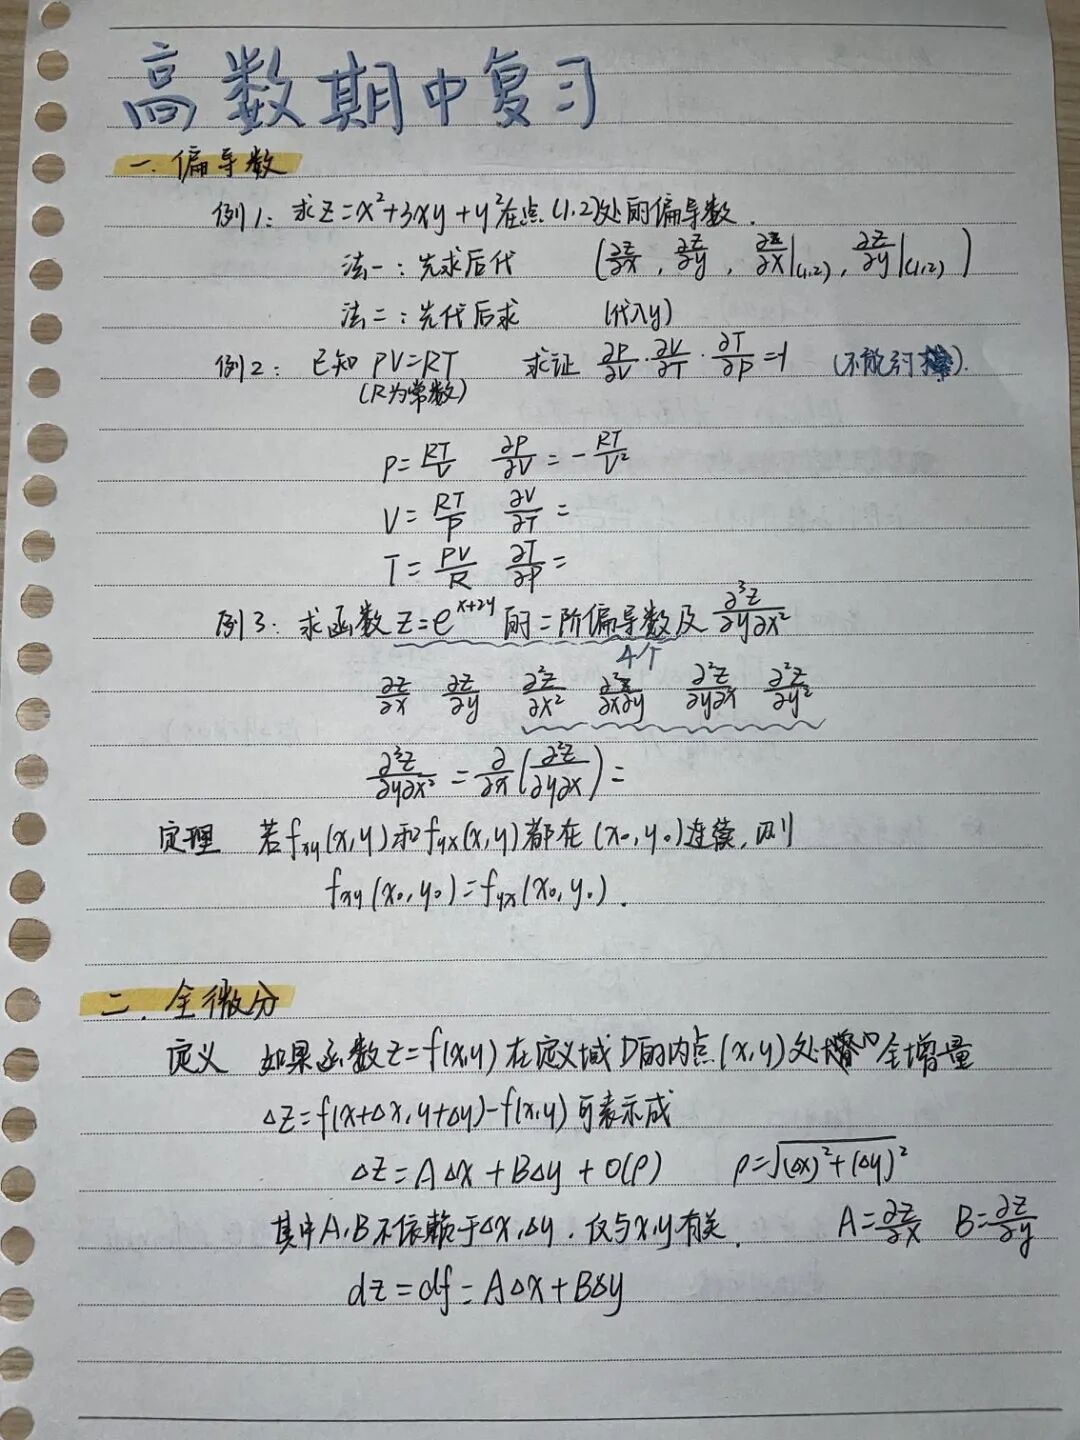 高数期中复习
一. 偏导数
例1: 求z=x²+3xy+y²在点(1,2)处的偏导数.
法一: 先求后代 (∂z/∂x, ∂z/∂y, ∂z/∂x|(1,2), ∂z/∂y|(1,2))
法二: 先代后求 (代入y)
例2: 已知 PV=RT 求证 ∂P/∂V·∂V/∂T·∂T/∂P=-1 (不能约掉).
(R为常数)
P=RT/V ∂P/∂V=-RT/V²
V=RT/P ∂V/∂T=
T=PV/R ∂T/∂P=
例3: 求函数z=e^(x+2y)的二阶偏导数及∂³z/∂y∂x²
4个
∂z/∂x ∂z/∂y ∂²z/∂x² ∂²z/∂x∂y ∂²z/∂y∂x ∂²z/∂y²
∂³z/∂y∂x²=∂/∂x(∂²z/∂y∂x)=
定理 若fxy(x,y)和fyx(x,y)都在(x₀,y₀)连续,则
fxy(x₀,y₀)=fyx(x₀,y₀).
二. 全微分
定义 如果函数z=f(x,y)在定义域D的内点(x,y)处全增量
Δz=f(x+Δx,y+Δy)-f(x,y)可表示成
Δz=AΔx+BΔy+o(ρ) ρ=√((Δx)²+(Δy)²)
其中A,B不依赖于Δx,Δy,仅与x,y有关. A=∂z/∂x B=∂z/∂y
dz=df=AΔx+BΔy